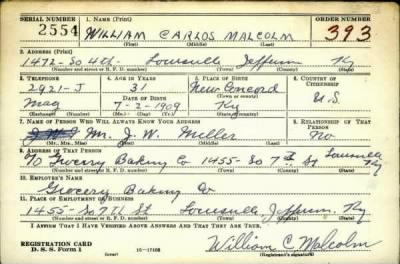 SERIAL NUMBER 1. NAME (Print) ORDER NUMBER
2554 WILLIAM CARLOS MALCOLM 393
(First) (Middle) (Last)
2. ADDRESS (Print)
1472-So 4th- Louisville Jefferson Ky
(Number and street or R. F. D. number) (Town) (County) (State)
3. TELEPHONE 4. AGE IN YEARS 5. PLACE OF BIRTH 6. COUNTRY OF CITIZENSHIP
2921-J 31 New Concord U.S.
DATE OF BIRTH (Town or county)
Mag 7-2-1909 Ky
(Exchange) (Number) (Mo.) (Day) (Yr.) (State or country)
7. NAME OF PERSON WHO WILL ALWAYS KNOW YOUR ADDRESS 8. RELATIONSHIP OF THAT PERSON
Mr. J. W. Miller No
(Mr., Mrs., Miss) (First) (Middle) (Last)
9. ADDRESS OF THAT PERSON
c/o Grocery Baking Co 1455-So 7th St Louisville Ky
(Number and street or R. F. D. number) (Town) (County) (State)
10. EMPLOYER'S NAME
Grocery Baking Co
11. PLACE OF EMPLOYMENT OR BUSINESS
1455-So 7th St Louisville, Jefferson, Ky
(Number and street or R. F. D. number) (Town) (County) (State)
I AFFIRM THAT I HAVE VERIFIED ABOVE ANSWERS AND THAT THEY ARE TRUE.
REGISTRATION CARD
D. S. S. Form 1 16-17105 William C. Malcolm
(over) (Registrant's signature)